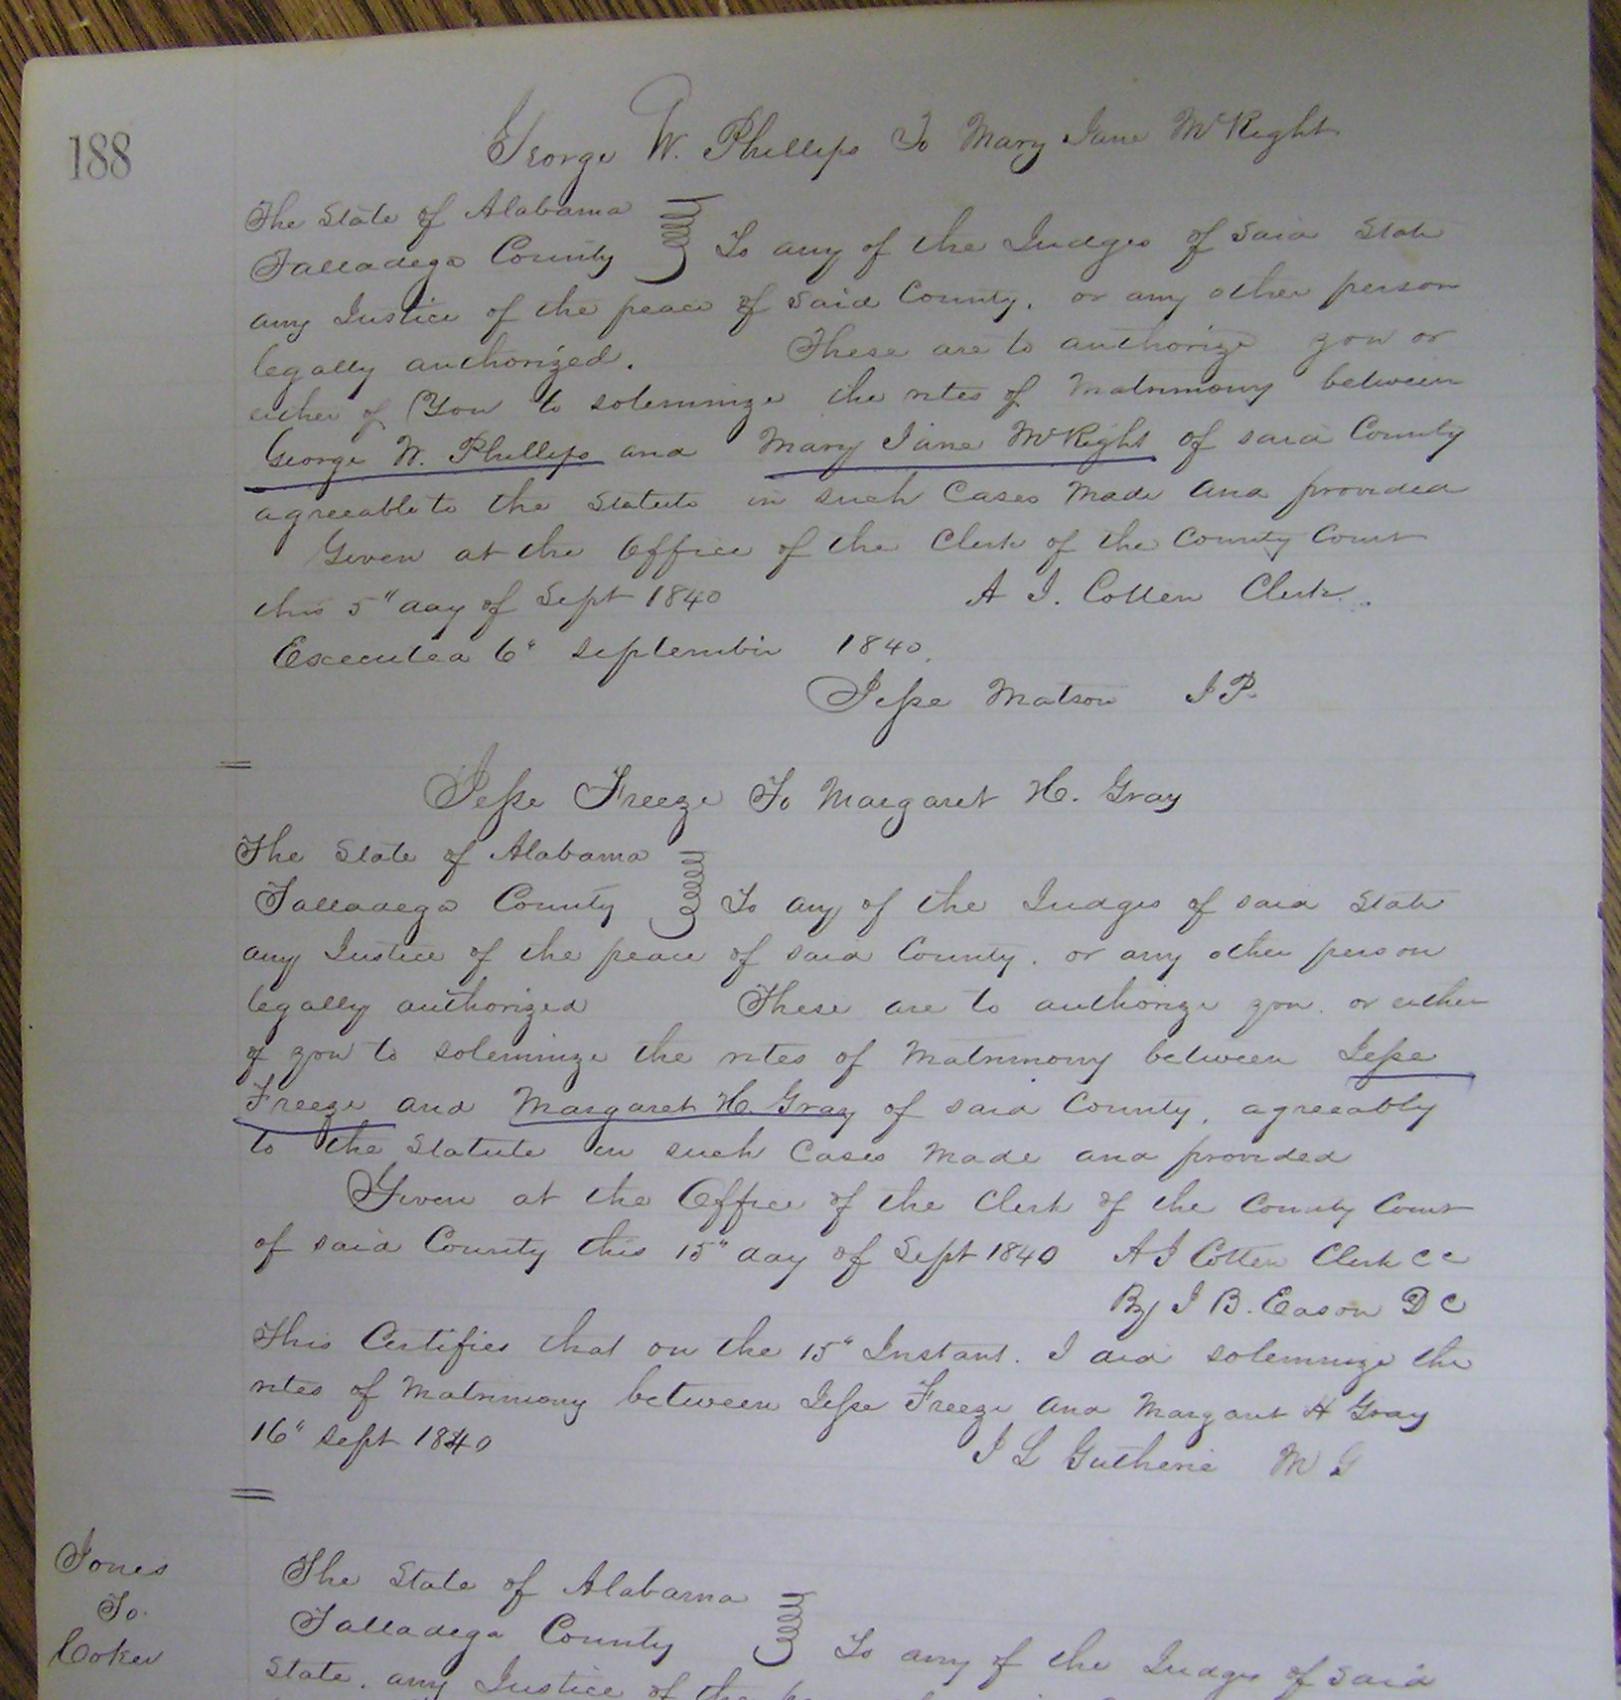 188
George W. Phillips To Mary Jane McRight
The State of Alabama
Talladega County To any of the Judges of said State
any Justice of the peace of said County, or any other person
legally authorized. These are to authorize you or
either of You to solemnize the rites of Matrimony between
George W. Phillips and Mary Jane McRight of said County
agreeable to the Statute in such Cases Made and provided
Given at the Office of the Clerk of the County Court
this 5" day of Sept 1840 A J. Cotten Clerk
Executed 6" September 1840.
Jesse Matson J P.
Jesse Freeze To Margaret H. Gray
The State of Alabama
Talladega County To any of the Judges of said State
any Justice of the peace of said County. or any other person
legally authorized These are to authorize you. or either
of you to solemnize the rites of Matrimony between Jesse
Freeze and Margaret H. Gray of said County, agreeably
to the Statute in such Cases Made and provided
Given at the Office of the Clerk of the County Court
of said County this 15" day of Sept 1840 A J Cotten Clerk CC
By J B. Eason D C
This Certifies that on the 15" Instant. I did solemnize the
rites of Matrimony between Jesse Freeze and Margaret H Gray
16" Sept 1840 J L Gutherie M G
Jones
To
Coker
The State of Alabama
Talladega County To any of the Judges of said
State, any Justice of the